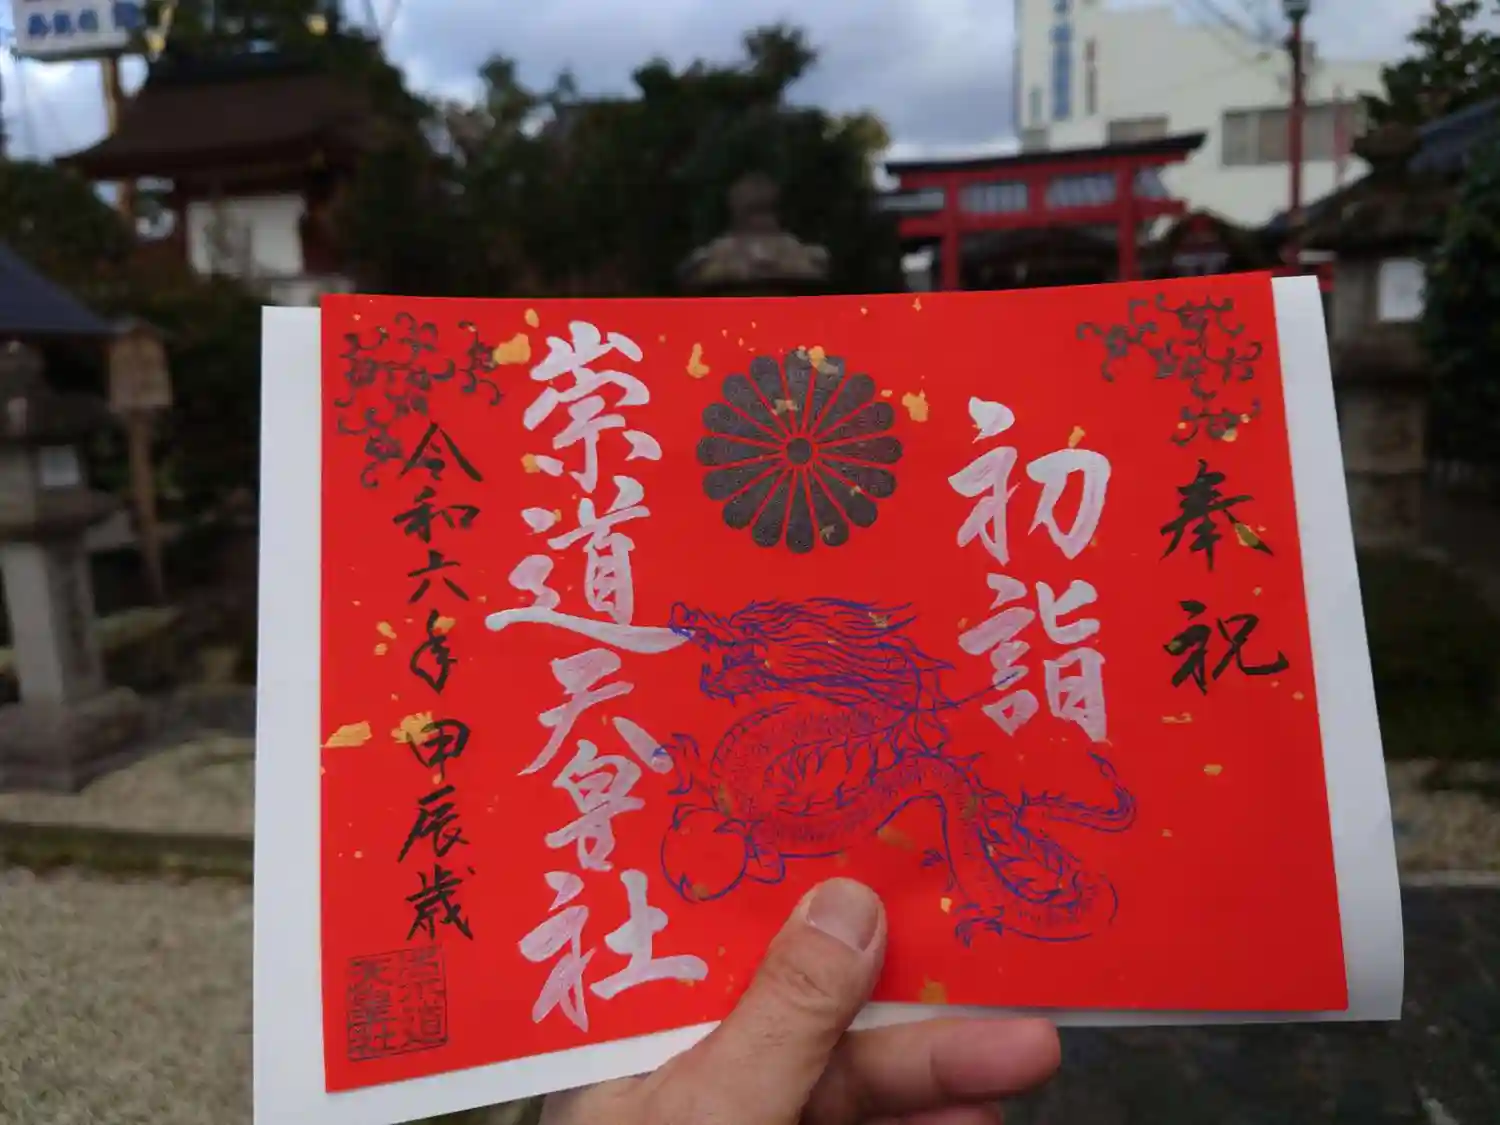 奉祝
初詣
崇道天皇社
令和六年 甲辰歳
崇道
天皇社